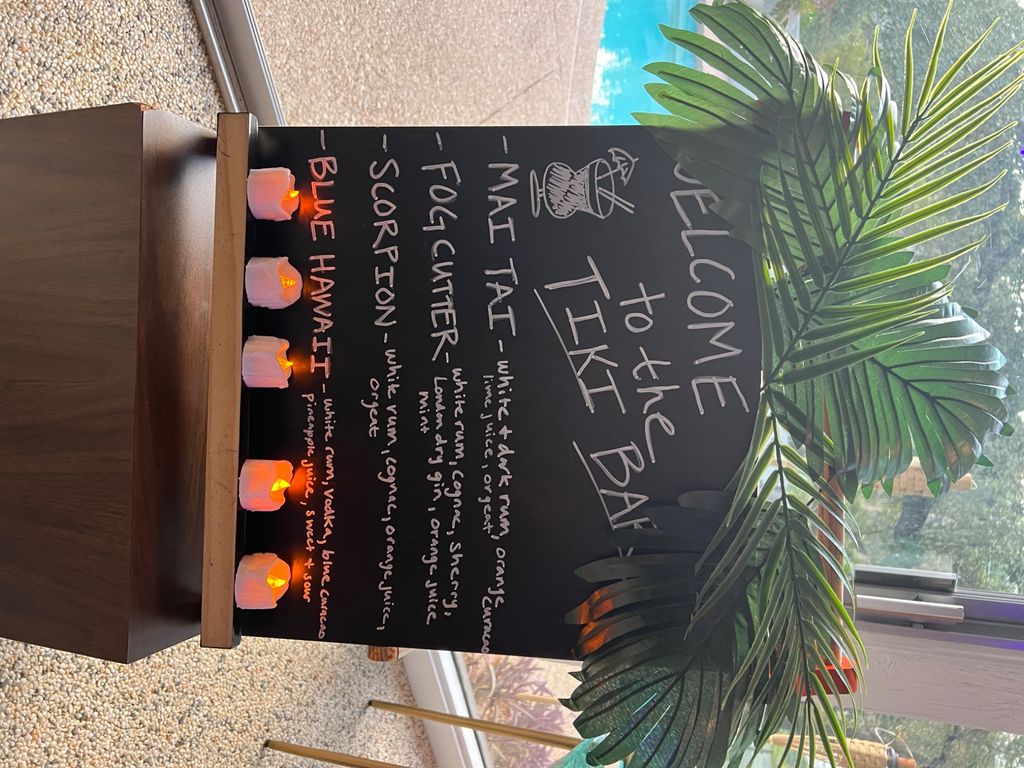 WELCOME
to the
TIKI BAR
- MAI TAI - white + dark rum, orange curacao
lime juice, orgeat
- FOG CUTTER - white rum, cogne, sherry,
London dry gin, orange juice
mint
- SCORPION - white rum, cogna, orange juice,
orgeat
- BLUE HAWAII - white rum, vodka, blue curacao
pineapple juice, sweet + sour